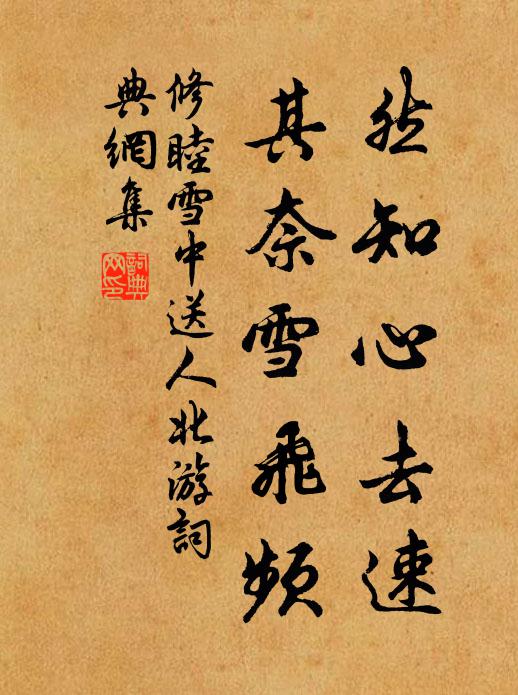 然知心去速
其奈雪飛頻
修睦雪中送人北游詞
典網集
詞典網印